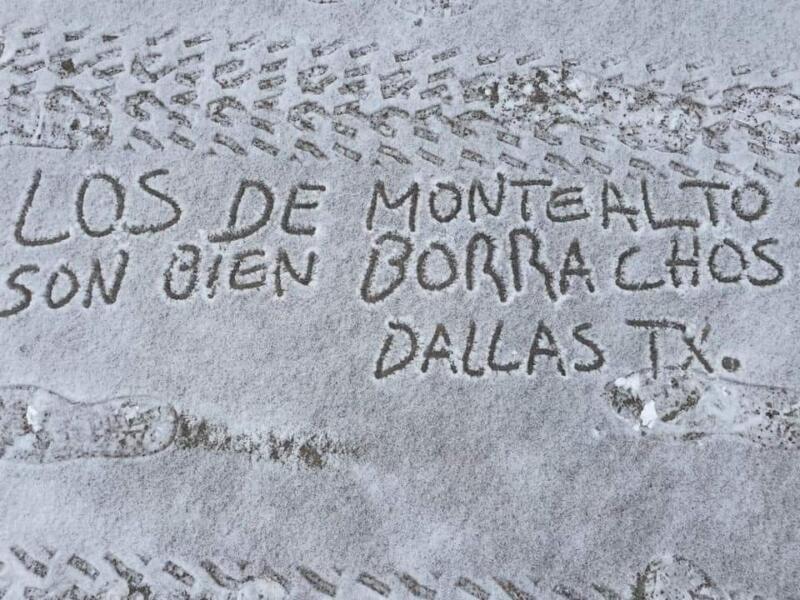 LOS DE MONTEALTO
SON BIEN BORRACHOS
DALLAS TX.